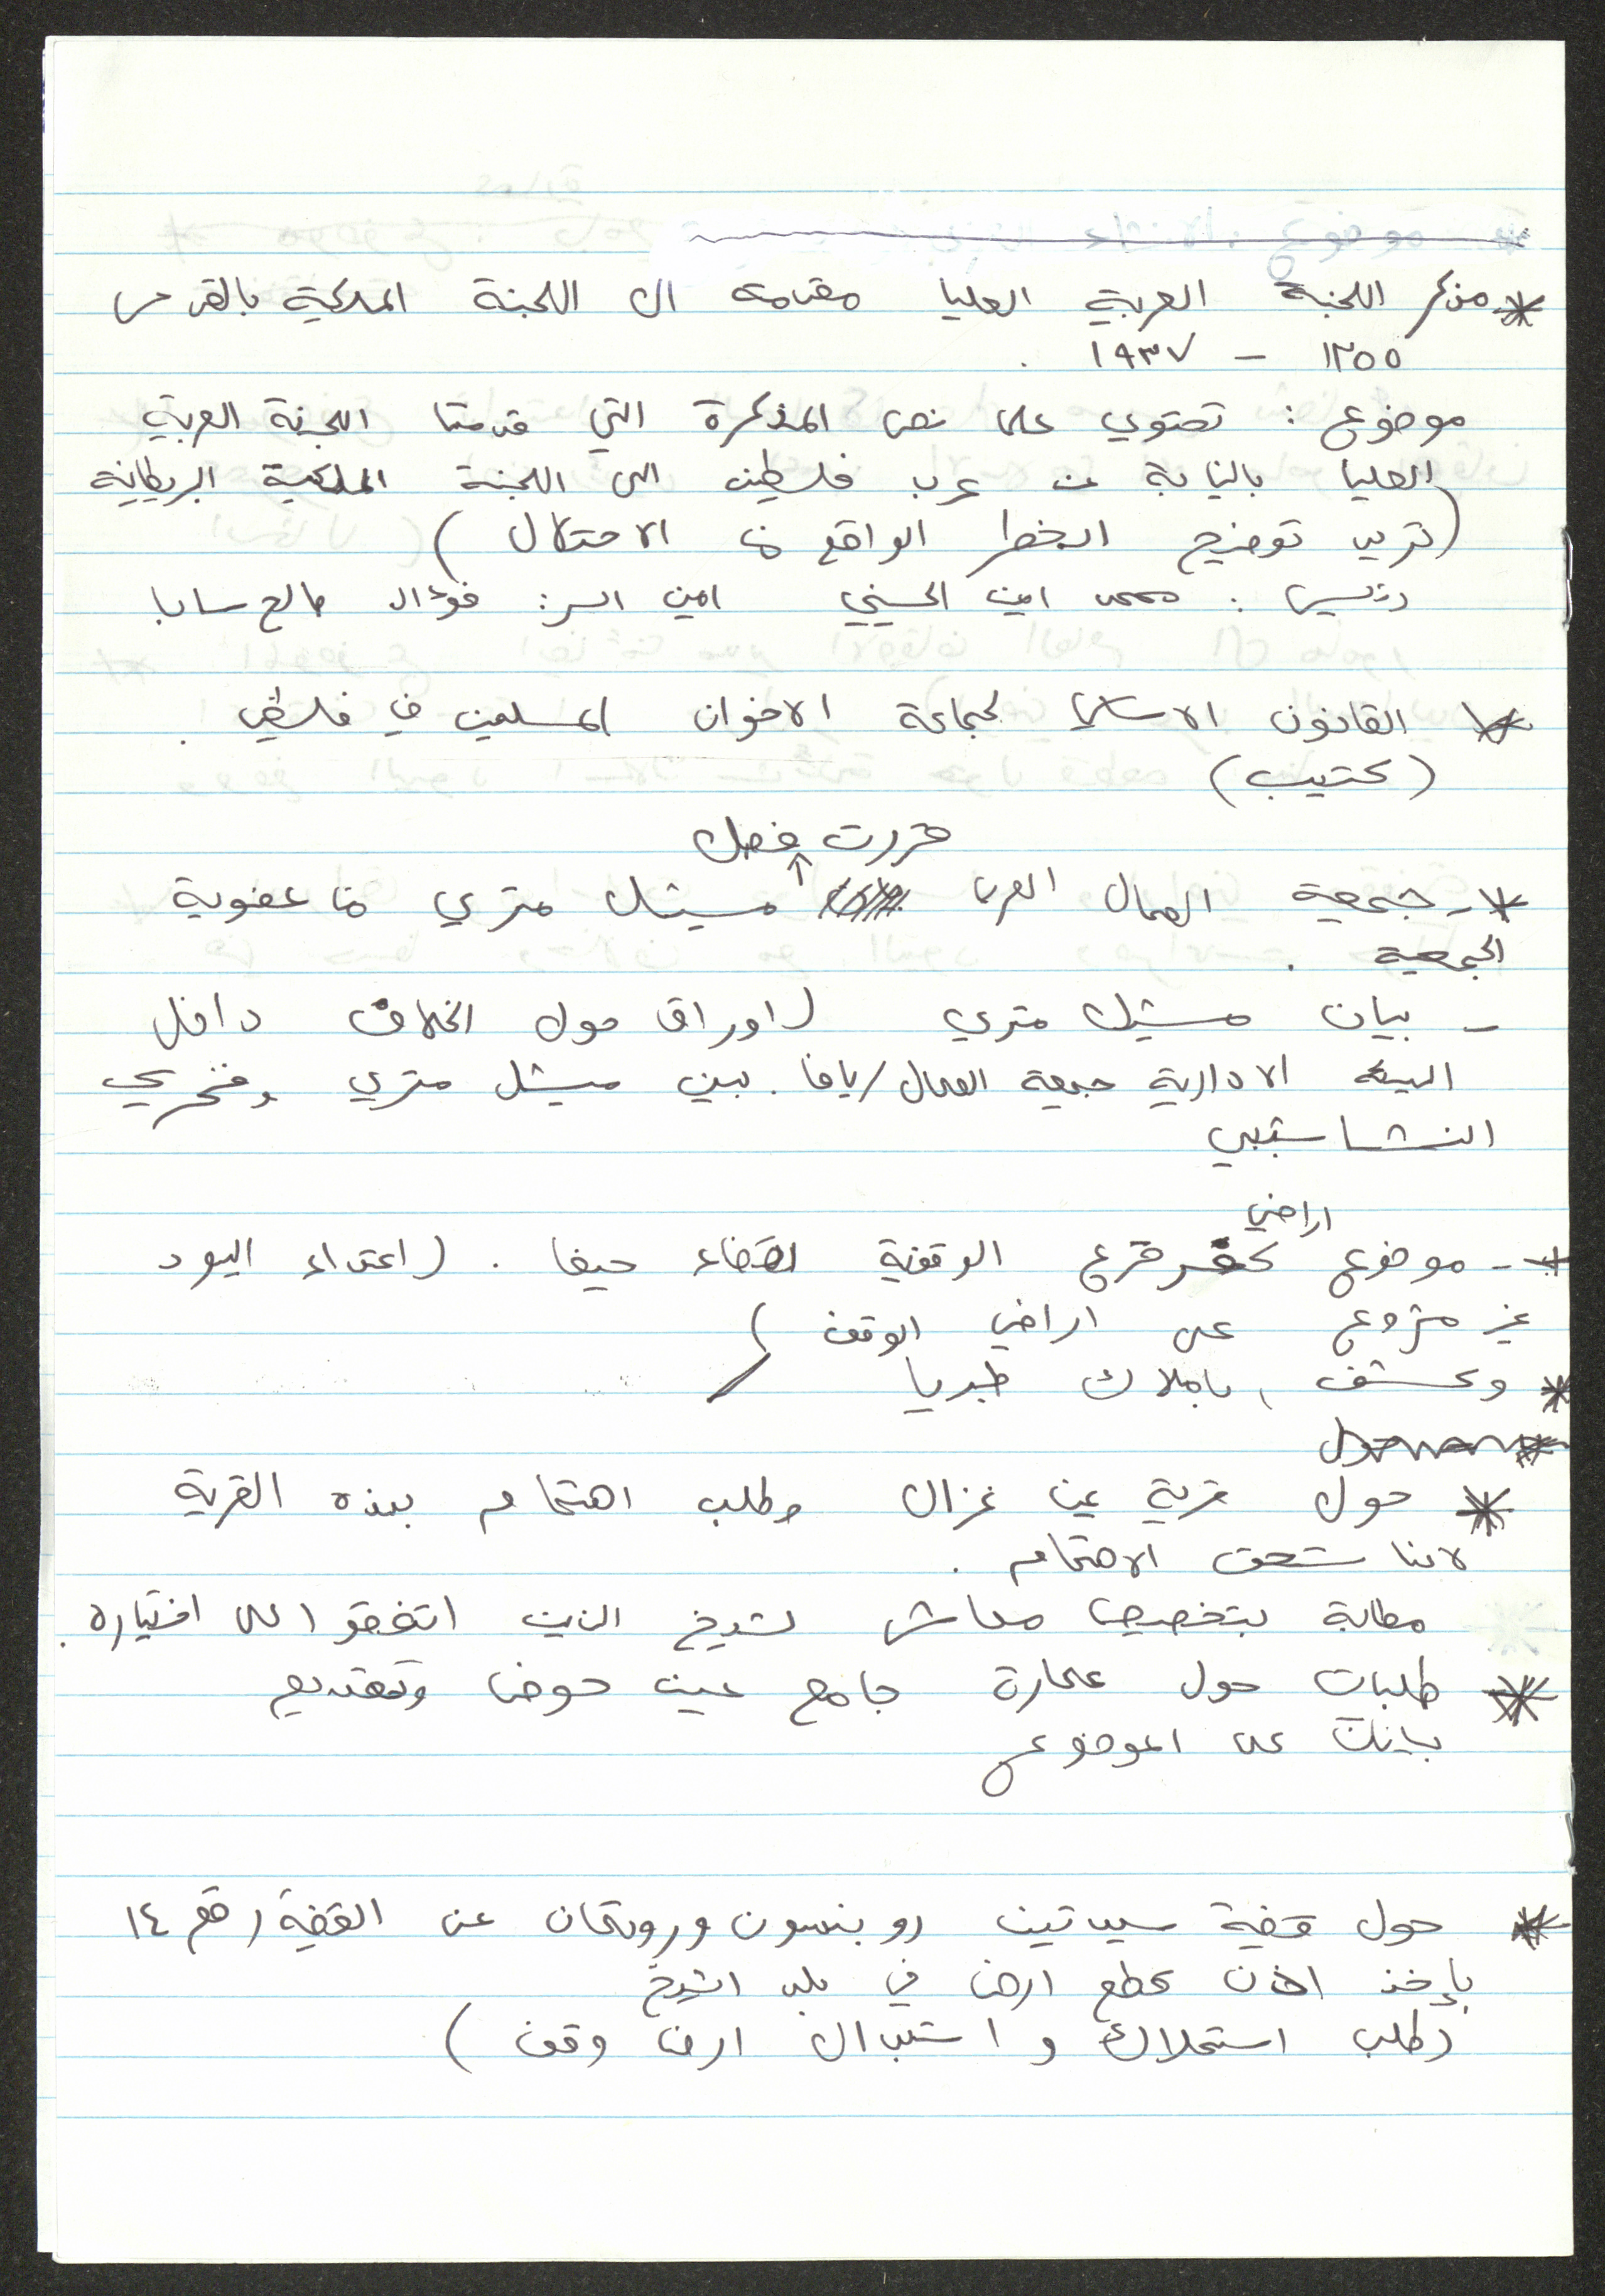 * مذكر اللجنة العربية العليا مقدمه الى اللجنة الملكية بالقدس
١٣٥٥ – ١٩٣٧ .
موضوع : تحتوي على نص المذكرة التي قدمتها اللجنة العربية
العليا بالنيابة عن عرب فلسطين الى اللجنة الملكية البريطانية
(تريد توضيح الخطر الواقع من الاحتلال)
رئيس : محمد امين الحسيني امين السر: فؤاد صالح سابا
* القانون الاساسي لجماعة الاخوان المسلمين في فلسطين .
(كتيب)
قررت فصل
* - جمعية العمال العرب ميشل متري من عضوية
الجمعية .
- بيان ميشيل متري (اوراق حول الخلاف داخل
الهيئة الادارية جمعية العمال/يافا . بين ميشل متري وفخري
النشاشيبي
اراضي
* - موضوع قرع الوقفية لقضاء حيفا . (اعتداء اليهود
غير مشروع على اراضي الوقف)
* وكشف باملاك طبريا
حول
* حول قرية عين غزال وطلب اهتمام بهذه القرية
لانها تستحق الاهتمام .
مطالبة بتخصيص معاش لشيخ الذين اتفقوا على اختياره .
* طلبات حول عمارة جامع عين حوض وتقديم
بيانات عن الموضوع
* حول قضية سيداتين روبنسون وروتمان عن القضية رقم ١٤
بإخذ اذن قطع ارض في بلد الشيخ
(طلب استملاك و استبدال ارض وقف)